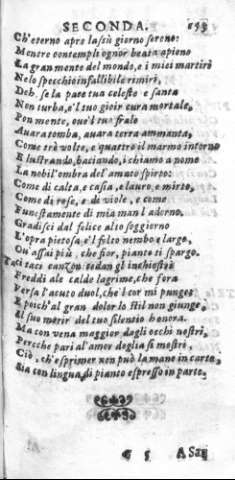 SECONDA. 153
Ch'eterno apre lassù giorno sereno:
Mentre contempli ognor beata apieno
La gran mente del mondo, e i miei martiri
Nelo specchio infallibile rimiri,
Deh, se la pace tua celeste e santa
Non turba, e'l tuo gioir cura mortale,
Pon mente, oue'l tuo frale
Auara tomba, auara terra ammanta,
Come trè volte, e quattro il marmo intorno
E lustrando, baciando, i chiamo a nome
La nobil'ombra del'amato spirto:
Come di calta, e casia, e lauro, e mirto,
Come di rose, e di viole, e come
Funestamente di mia man l'adorno.
Gradisci dal felice alto soggiorno
L'opra pietosa, e'l folto nembo e largo,
Ou' assai più, che fior, pianto ti spargo.
Taci taci canzon, cedan gl'inchiostri
Freddi ale calde lagrime, che fora
Versa l'acuto duol, che'l cor mi punge:
E poich'al gran dolor lo stil non giunge,
Il suo morir del tuo silentio honora.
Ma con vena maggior dagli occhi nostri,
Perche pari al'amor doglia si mostri,
Ciò, ch'esprimer non può la mano in carte,
Sia con lingua di pianto espresso in parte.
G 5 A Sai